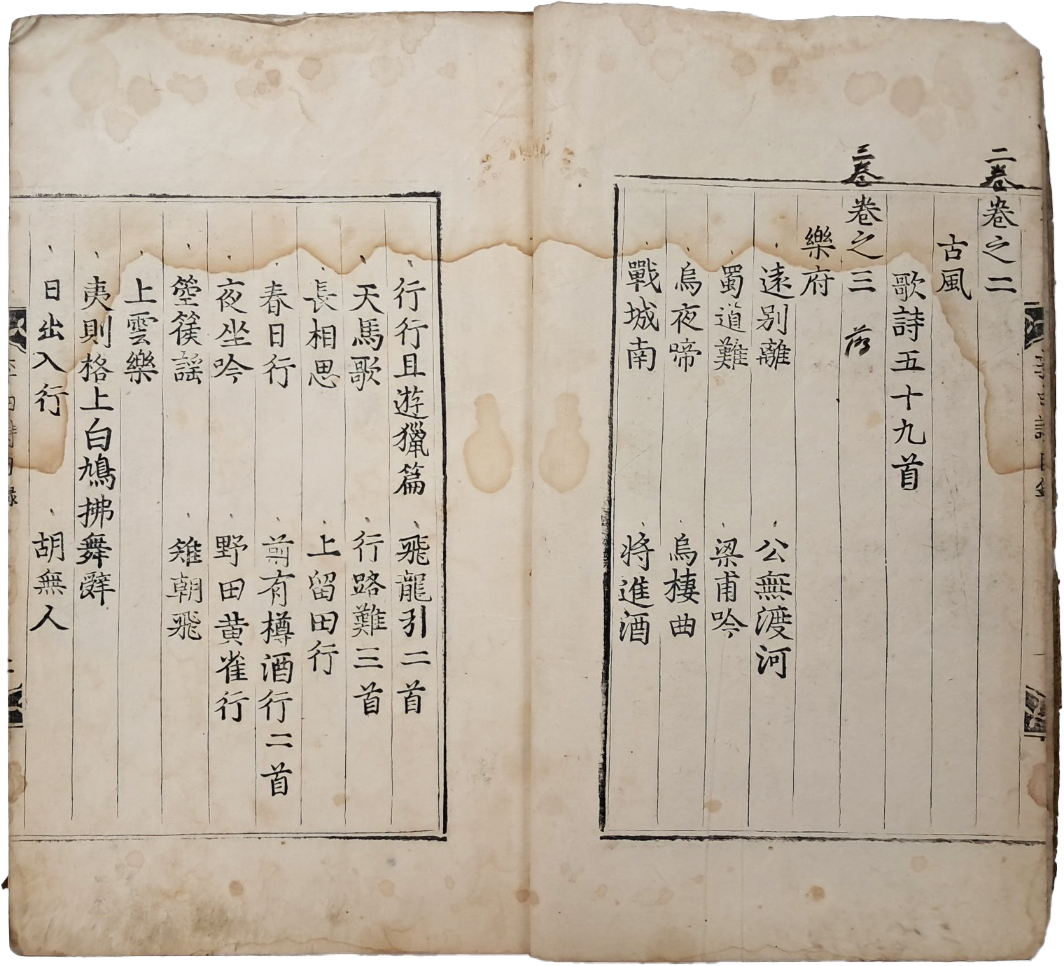 二卷
卷之二
古風
歌詩五十九首
三卷
卷之三
樂府
遠別離 公無渡河
蜀道難 梁甫吟
烏夜啼 烏棲曲
戰城南 將進酒
行行且遊獵篇 飛龍引二首
天馬歌 行路難三首
長相思 上留田行
春日行 前有樽酒行二首
夜坐吟 野田黃雀行
箜篌謠 雉朝飛
上雲樂
夷則格上白鳩拂舞辭
日出入行 胡無人